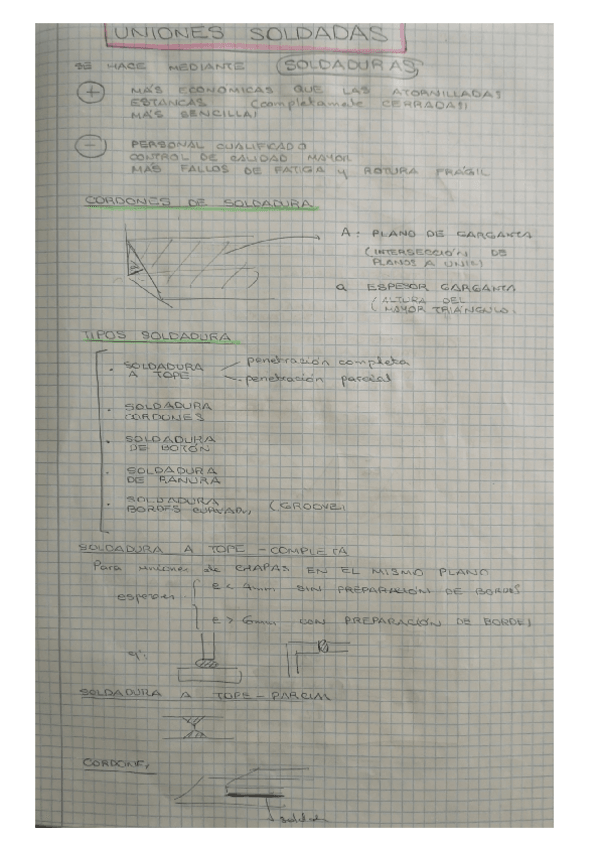 UNIONES SOLDADAS
SE HACE MEDIANTE SOLDADURAS
+ MÁS ECONOMICAS QUE LAS ATORNILLADAS
ESTANCAS (completamente CERRADAS)
MÁS SENCILLAS
- PERSONAL CUALIFICADO
CONTROL DE CALIDAD MAYOR
MÁS FALLOS DE FATIGA y ROTURA FRÁGIL
CORDONES DE SOLDADURA
A: PLANO DE GARGANTA
(INTERSECCIÓN DE
PLANOS A UNIR)
a ESPESOR GARGANTA
(ALTURA DEL
MAYOR TRIÁNGULO)
TIPOS SOLDADURA
· SOLDADURA A TOPE
penetración completa
penetración parcial
· SOLDADURA
CORDONES
· SOLDADURA
DE BOTÓN
· SOLDADURA
DE RANURA
· SOLDADURA
BORDES CURVADOS (GROOVE)
SOLDADURA A TOPE - COMPLETA
Para uniones de CHAPAS EN EL MISMO PLANO
espesores
e < 4mm SIN PREPARACIÓN DE BORDES
e > 6mm CON PREPARACIÓN DE BORDES
SOLDADURA A TOPE - PARCIAL
CORDONES